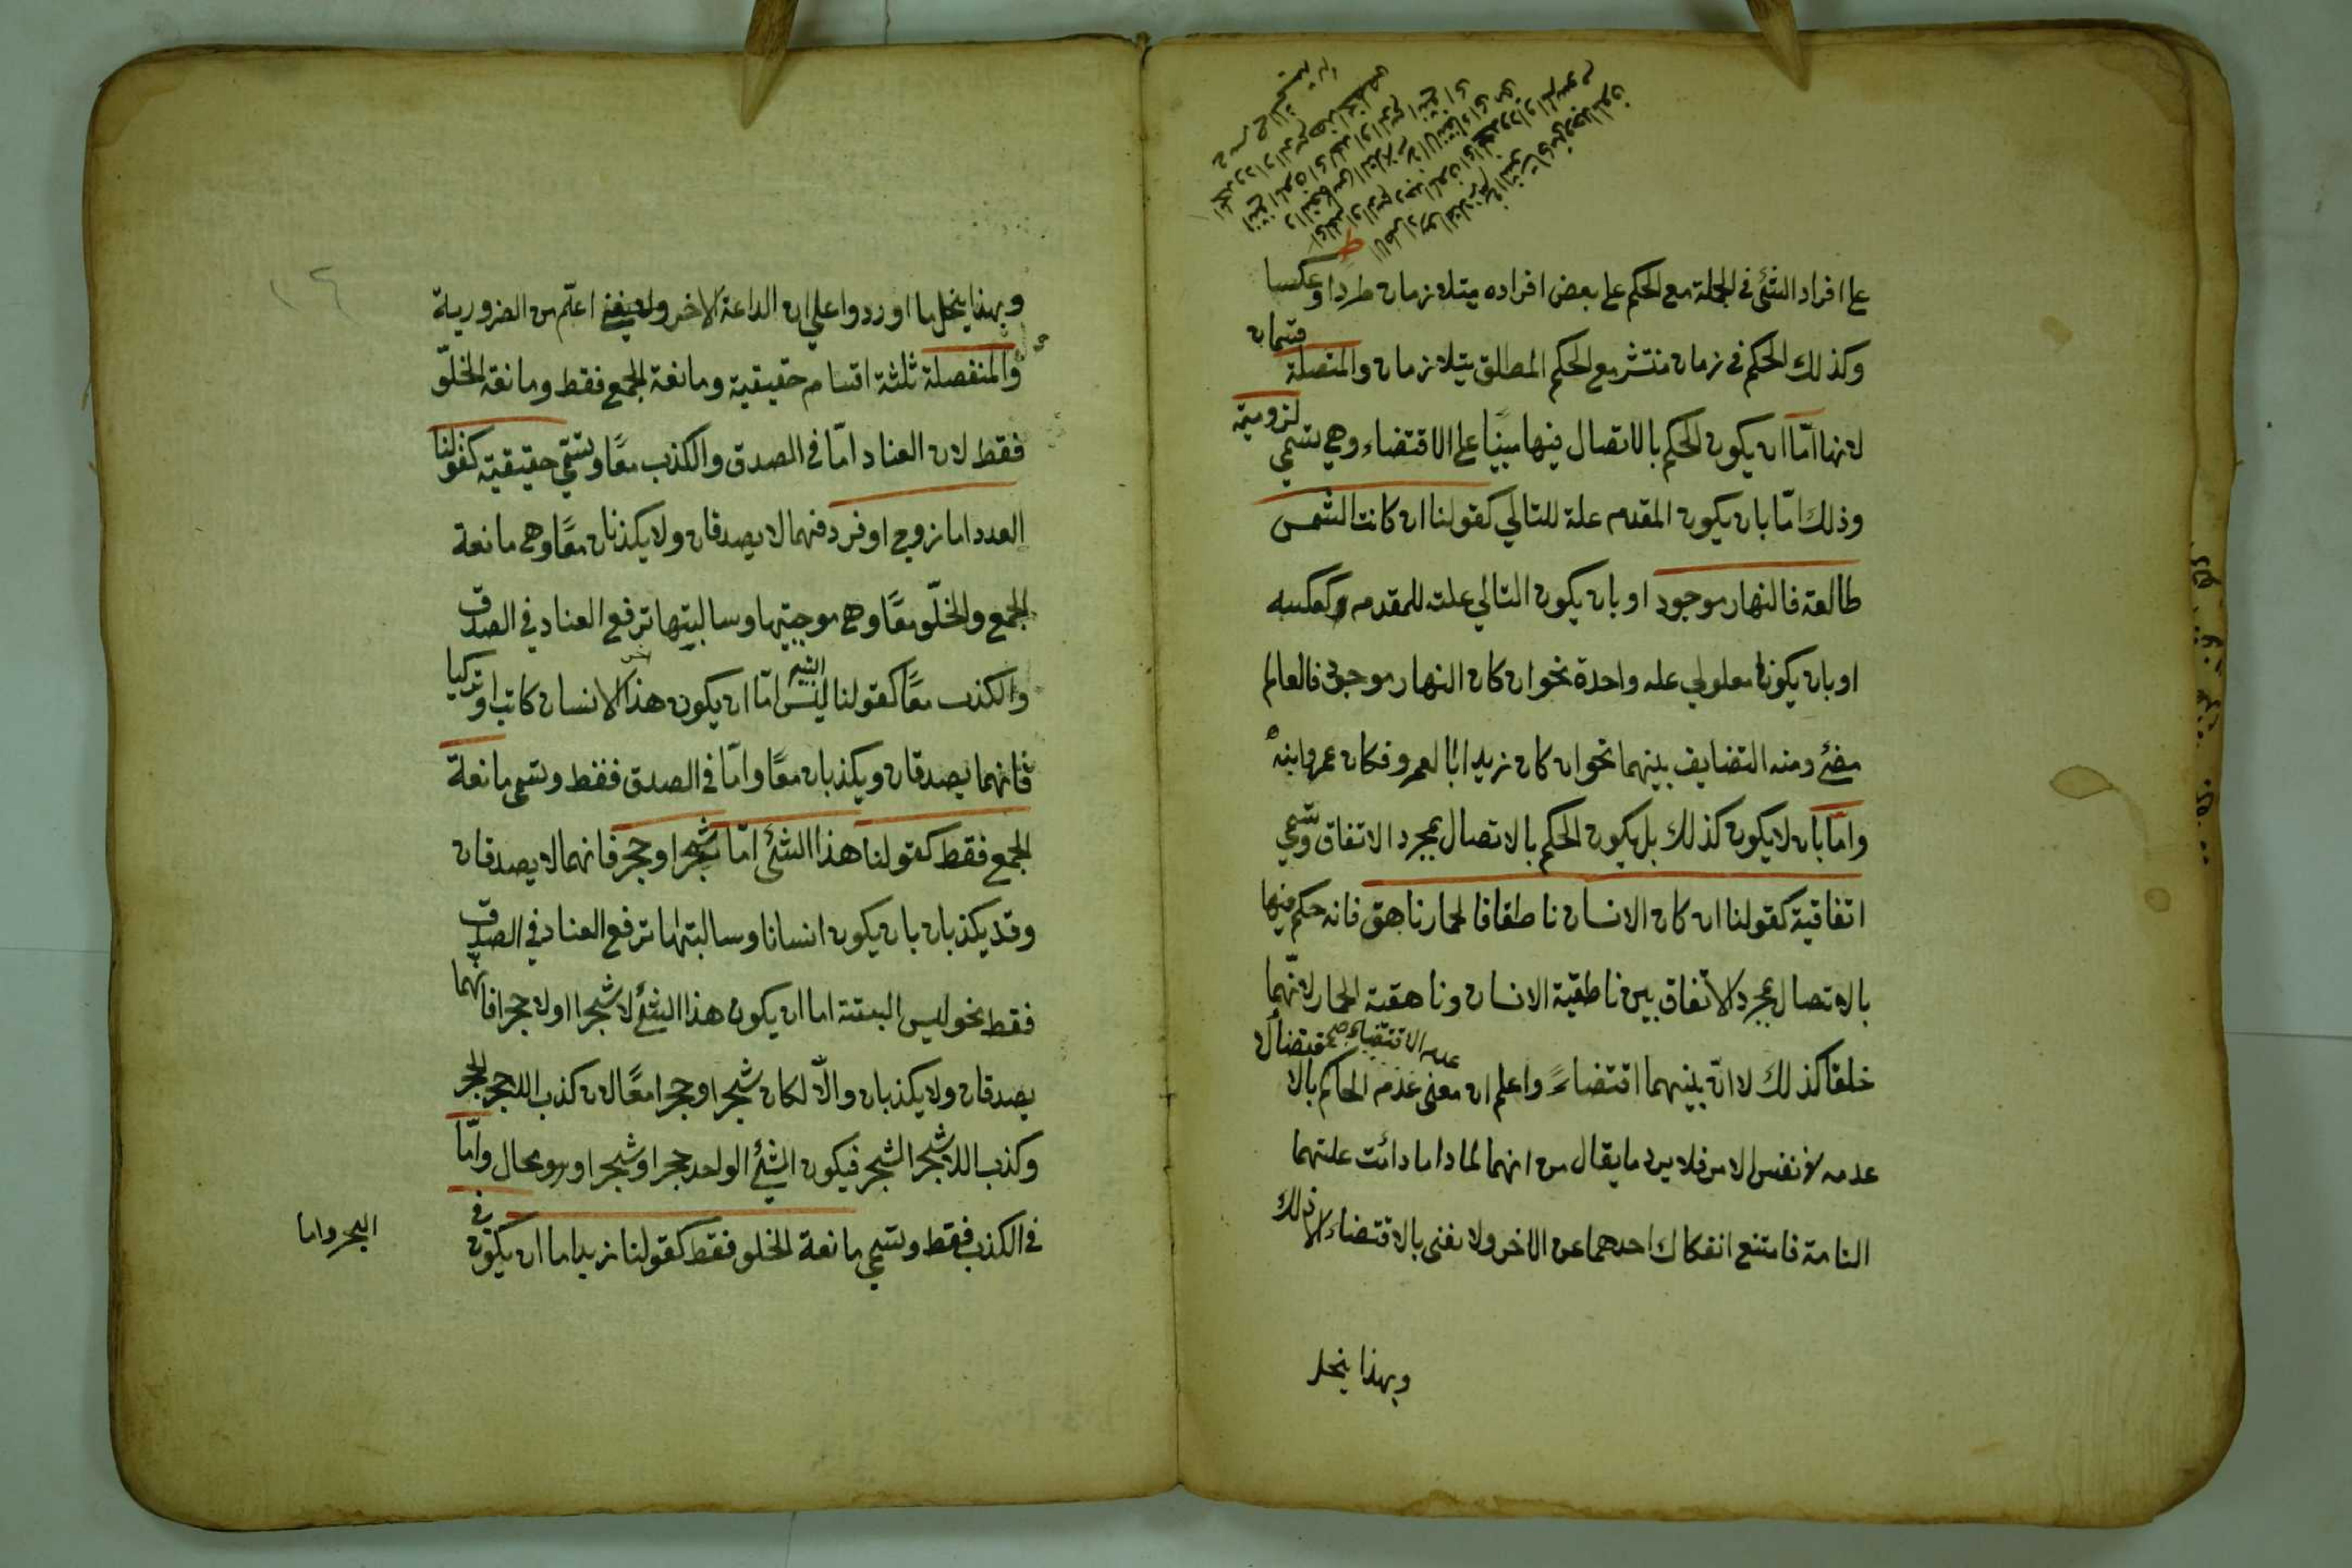 على افراد الشئ في الجملة مع الحكم على بعض افراده يتلازمان طردا وعكسا
وكذلك الحكم في زمان منتشر مع الحكم المطلق يتلازمان والمتصلة قسمان
لانها امّا ان يكون الحكم بالاتصال فيها مبنيًا على الاقتضاء وهي تسمى لزومية
وذلك امّا بان يكون المقدم علة للتالي كقولنا ان كانت الشمس
طالعة فالنهار موجود او بان يكون التالي علت للمقدم كعكسه
او بان يكونا معلولي علة واحدة نحو ان كان النهار موجودا فالعالم
مضئ ومنه التضايف بينهما نحو ان كان زيد ابا لعمرو فكان عمرو ابنه
وامّا بان لا يكون كذلك بل يكون الحكم بالاتصال بمجرد الاتفاق وتسمى
اتفاقية كقولنا ان كان الانسان ناطقا فالحمار ناهق فانه حكم فيها
بالاتصال بمجرد الاتفاق بين ناطقية الانسان وناهقية الحمار لانّهما
خلقا كذلك لا انّ بينهما اقتضاءً واعلم ان معنى عدم الحاكم بالا
عدمه لا نفس الامر فلا يرد ما يقال من انهما لما داما دائت علتهما
التامة فامتنع انفكاك احدهما عن الاخر ولا نغنى بالاقتضاء الا ذلك
وبهذا ينحل
وبهذا ينحل ما اوردوا على ان الداعة الاخر اعمّ من الضرورية
والمنفصلة ثلثة اقسام حقيقية ومانعة الجمع فقط ومانعة الخلوّ
فقط لان العناد امّا في الصدق والكذب معًا وتسمّى حقيقية كقولنا
العدد اما زوج او فرد فهما لا يصدقان ولا يكذبان معًا وهي مانعة
الجمع والخلوّ معًا وهي موجبتها وسالبتها ترفع العناد في الصدق
والكذب معًا كقولنا ليس البتة امّا ان يكون هذا الانسان كاتبا او تركيا
فانهما يصدقان ويكذبان معًا وامّا في الصدق فقط وتسمى مانعة
الجمع فقط كقولنا هذا الشئ امّا شجر او حجر فانهما لا يصدقان
وقد يكذبان بان يكون انسانا وسالبتها ترفع العناد في الصدق
فقط نحو ليس البتة اما ان يكون هذا الشئ لا شجرا او لا حجرا فانهما
يصدقان ولا يكذبان والّا لكان شجرا وحجرا معًا لان كذب اللاحجر الحجر
وكذب اللاشجر الشجر فيكون الشئ الواحد حجرا وشجرا وهو محال وامّا
في الكذب فقط وتسمى مانعة الخلو فقط كقولنا زيد اما ان يكون في
البحر واما